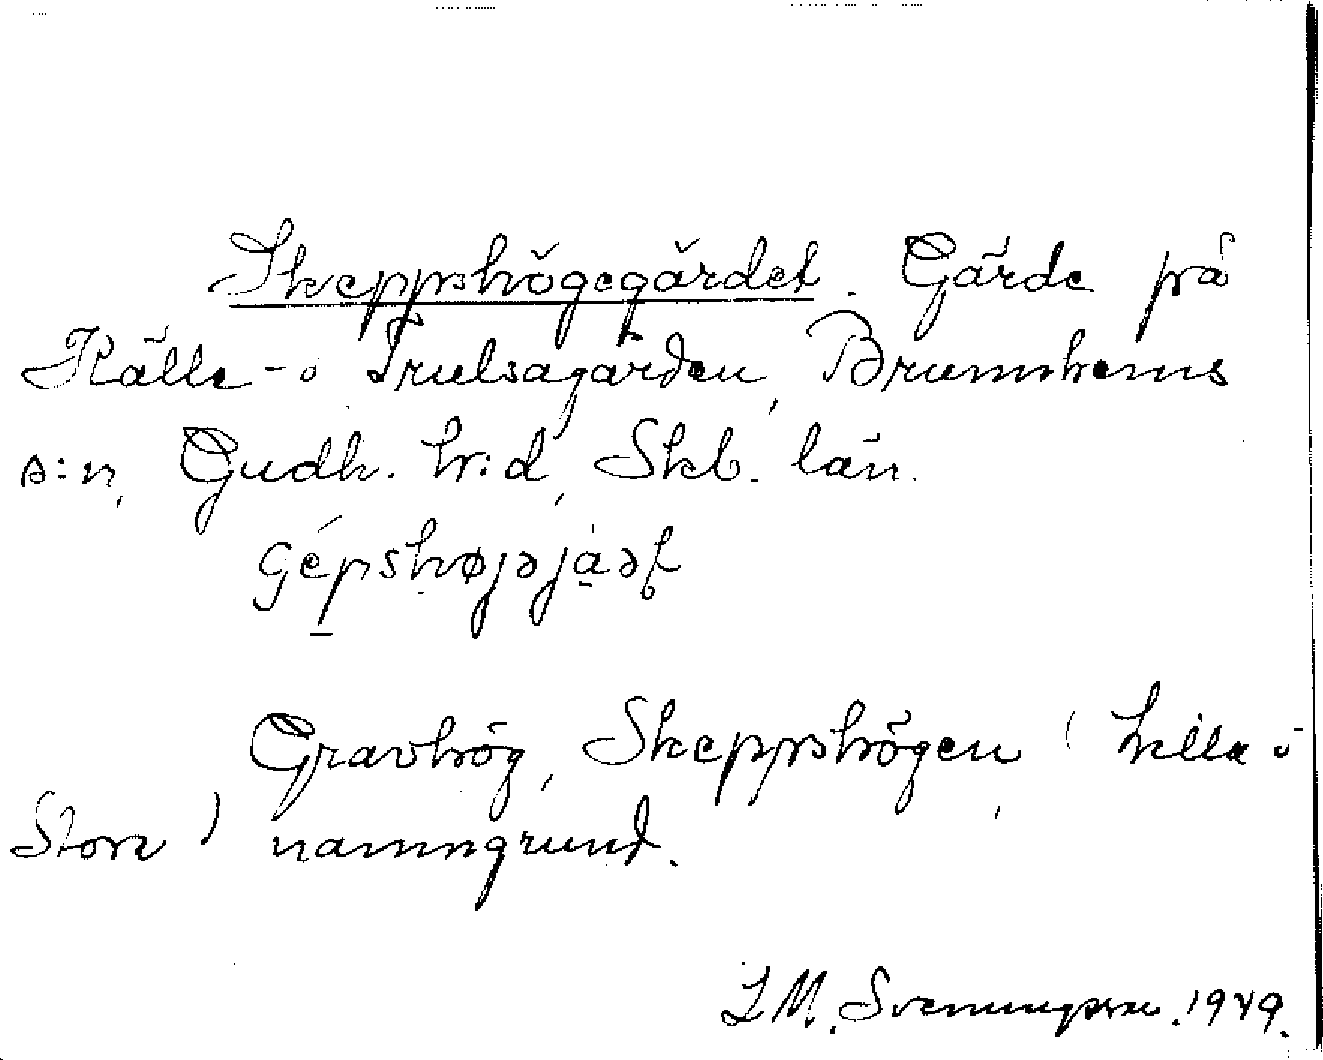 Skeppshögegärdet. Gärde på
Källe- o Trulsagården, Brunnhems
s:n, Gudh. h:d, Skb. län.
Gravhög, Skeppshögen (Lilla o
Stora) namngrund.
L M. Svenungsson. 1949.